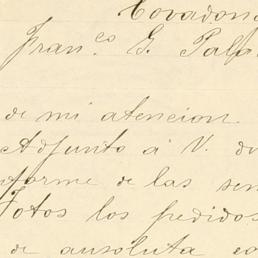 Covadon
Fran.co G. Palo
de mi atencion.
Adjunto á V. do
nforme de las sem
Fotos los pedidos
de ausoluta co